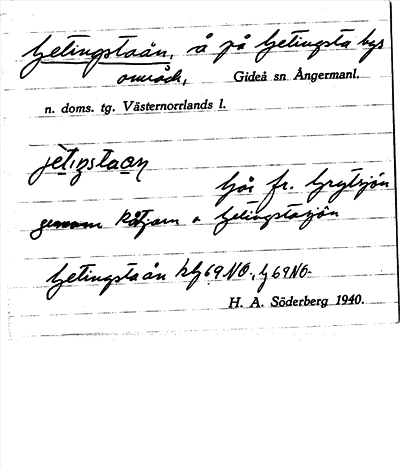 Getingstaån, å på Getingsta bys
område, Gideå sn Ångermanl.
n. doms. tg. Västernorrlands l.
jètiŋstaɑn
Går fr. Grytsjön
genom Kåtjärn o Getingstasjön
Getingstaån kbl 69 NO
H. A. Söderberg 1940.